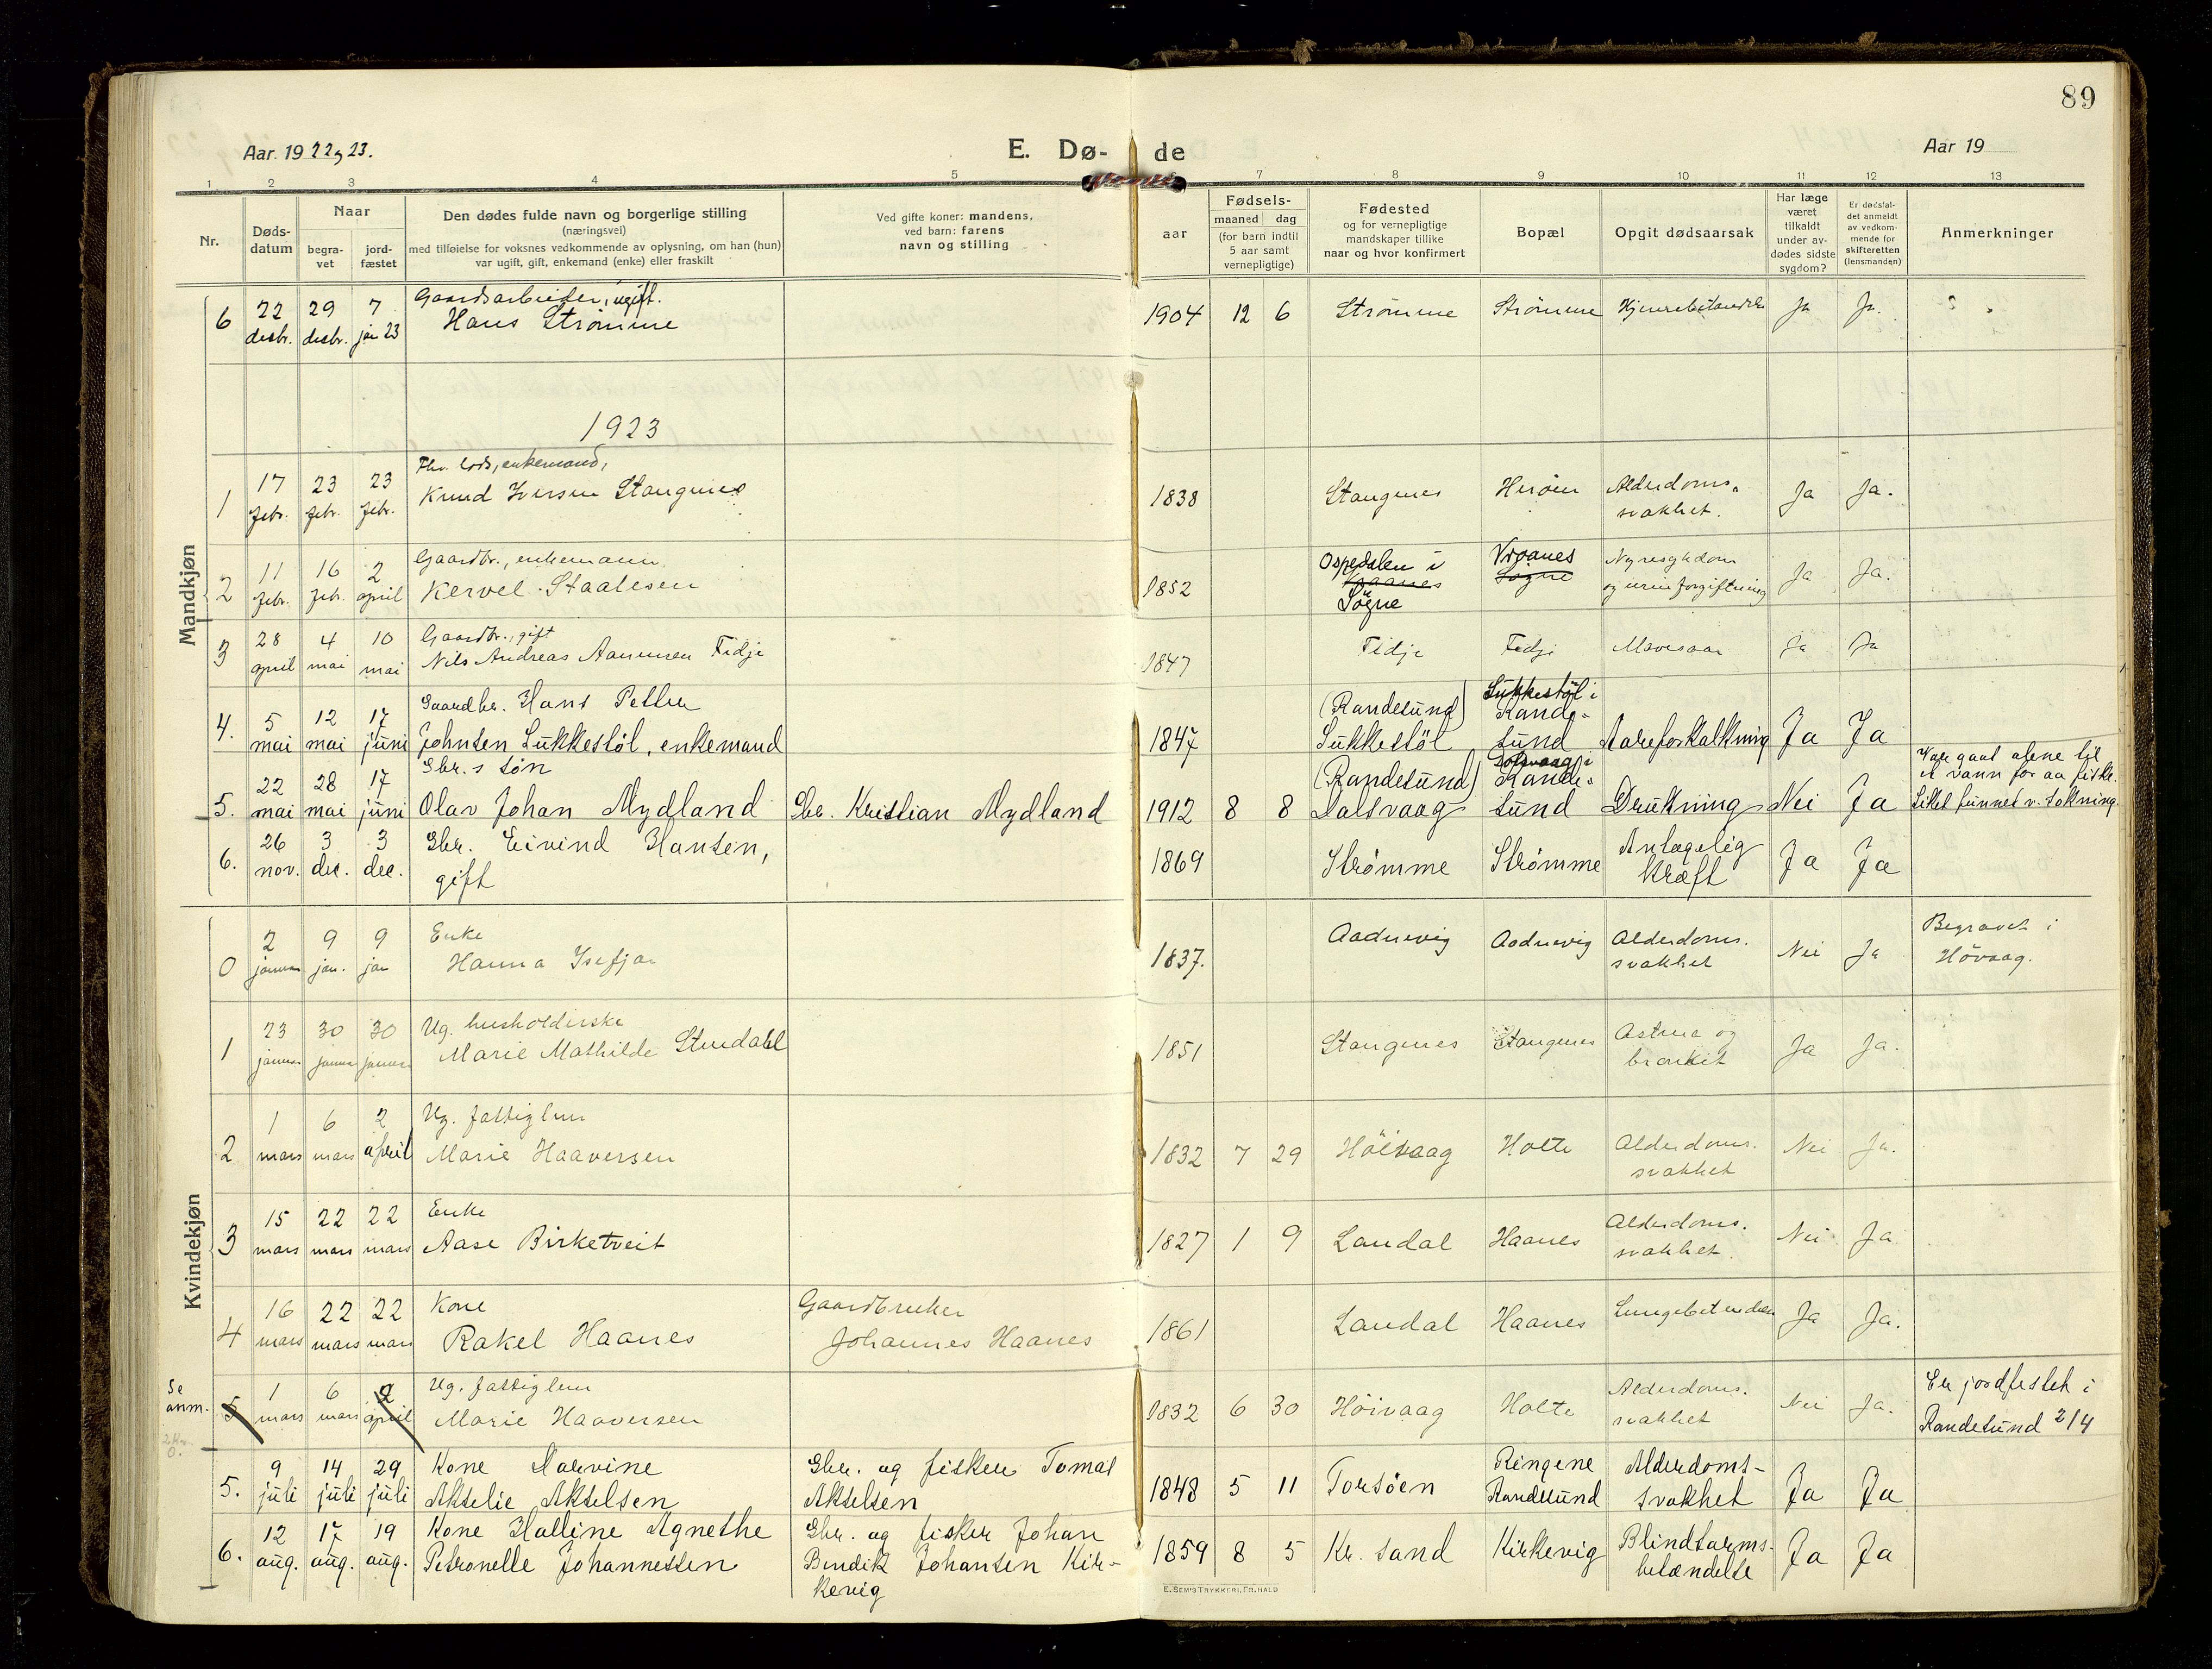 89
Aar. 19 22 og 23.
E. Dø-
de
Aar 19
1 2 3 4 5 7 8 9 10 11 12 13
Nr.
Døds-
datum
Naar
begra-
vet
jord-
fæstet
Den dødes fulde navn og borgerlige stilling
(næringsvei)
med tilføielse for voksnes vedkommende av oplysning, om han (hun)
var ugift, gift, enkemand (enke) eller fraskilt
Ved gifte koner: mandens,
ved barn: farens
navn og stilling
aar
Fødsels-
maaned dag
(for barn indtil
5 aar samt
vernepligtige)
Fødested
og for vernepligtige
mandskaper tillike
naar og hvor konfirmert
Bopæl
Opgit dødsaarsak
Har læge
været
tilkaldt
under av-
dødes sidste
sygdom?
Er dødsfal-
det anmeldt
av vedkom-
mende for
skifteretten
(lensmanden)
Anmerkninger
Mandkjøn
6 22 desbr. 29 desbr. 7 jan 23 Gaardsarbeider, ugift.
Hans Strømme 1904 12 6 Strømme Strømme Hjernebetændelse Ja Ja.
1923
1 17 febr. 23 febr. 23 febr. Fhv. lods, enkemand,
Knud Iversen Stangenes 1838 Stangenes Herøen Alderdoms-
svakhet. Ja Ja.
2 11 febr. 16 febr. 2 april Gaardbr., enkemann
Kervel Staalesen 1852 Ospedalen i
Vraanes
Søgne
Vraanes
Søgne
Nyresykdom
og urinforgiftning Ja Ja.
3 28 april 4 mai 10 mai Gaardbr., gift
Nils Andreas Aanunsen Fidje 1847 Fidje Fidje Mavesaar Ja Ja
4. 5 mai 12 mai 17 juni Gaardbr. Hans Petter
Johnsen Lukkestøl, enkemand 1847 (Randesund)
Lukkestøl
Lukkestøl i
Rande-
sund
Aareforkalkning Ja Ja
5. 22 mai 28 mai 17 juni Gbr.s søn
Olav Johan Mydland Gbr. Kristian Mydland 1912 8 8 (Randesund)
Dalsvaag
Dolsvaag i
Rande-
sund
Drukning Nei Ja Var gaat alene til
et vann for aa fiske.
Liket funnet v. sokning.
6. 26 nov. 3 dec. 3 dec. Gbr. Eivind Hansen,
gift 1869 Strømme Strømme Antagelig
kræft Ja Ja
Kvindekjøn
0 2 januar 9 jan. 9 jan Enke
Hanna Isefjær 1837. Aadnevig Aadnevig Alderdoms.
svakhet Nei Ja Begravet i
Høvaag.
1 23 januar 30 januar 30 januar Ug. husholderske
Marie Mathilde Stendahl 1851 Stangenes Stangenes Astma og
bronkit Ja Ja.
2 1 mars 6 mars 2 april Ug. fattiglem
Marie Haaversen 1832 7 29 Høivaag Holte Alderdoms.
svakhet Nei Ja.
3 15 mars 22 mars 22 mars Enke
Aase Birketveit 1827 1 9 Landal Haanes Alderdoms.
svakhet. Nei Ja
4 16 mars 22 mars 22 mars Kone
Rakel Haanes Gaardbruker
Johannes Haanes 1861 Landal Haanes Lungebetændelse Ja Ja.
Se
anm.
5 1 mars 6 mars 2 april Ug. fattiglem
Marie Haaversen 1832 6 30 Høivaag Holte Alderdoms.
svakhet Nei Ja. Er jordfestet i
Randesund 2/4
5. 9 juli 14 juli 29 juli Kone Marvine
Akselie Akselsen Gbr. og fisker Tomas
Akselsen 1848 5 11 Torsøen Ringene
Randesund Alderdoms-
svakhet Ja Ja
6. 12 aug. 17 aug. 19 aug. Kone Halline Agnethe
Petronelle Johannessen Gbr. og fisker Johan
Bendik Johansen Kir-
kevig 1859 8 5 Kr. sand Kirkevig Blindtarms-
betændelse Ja Ja
E. SEM'S TRYKKERI, FR.HALD